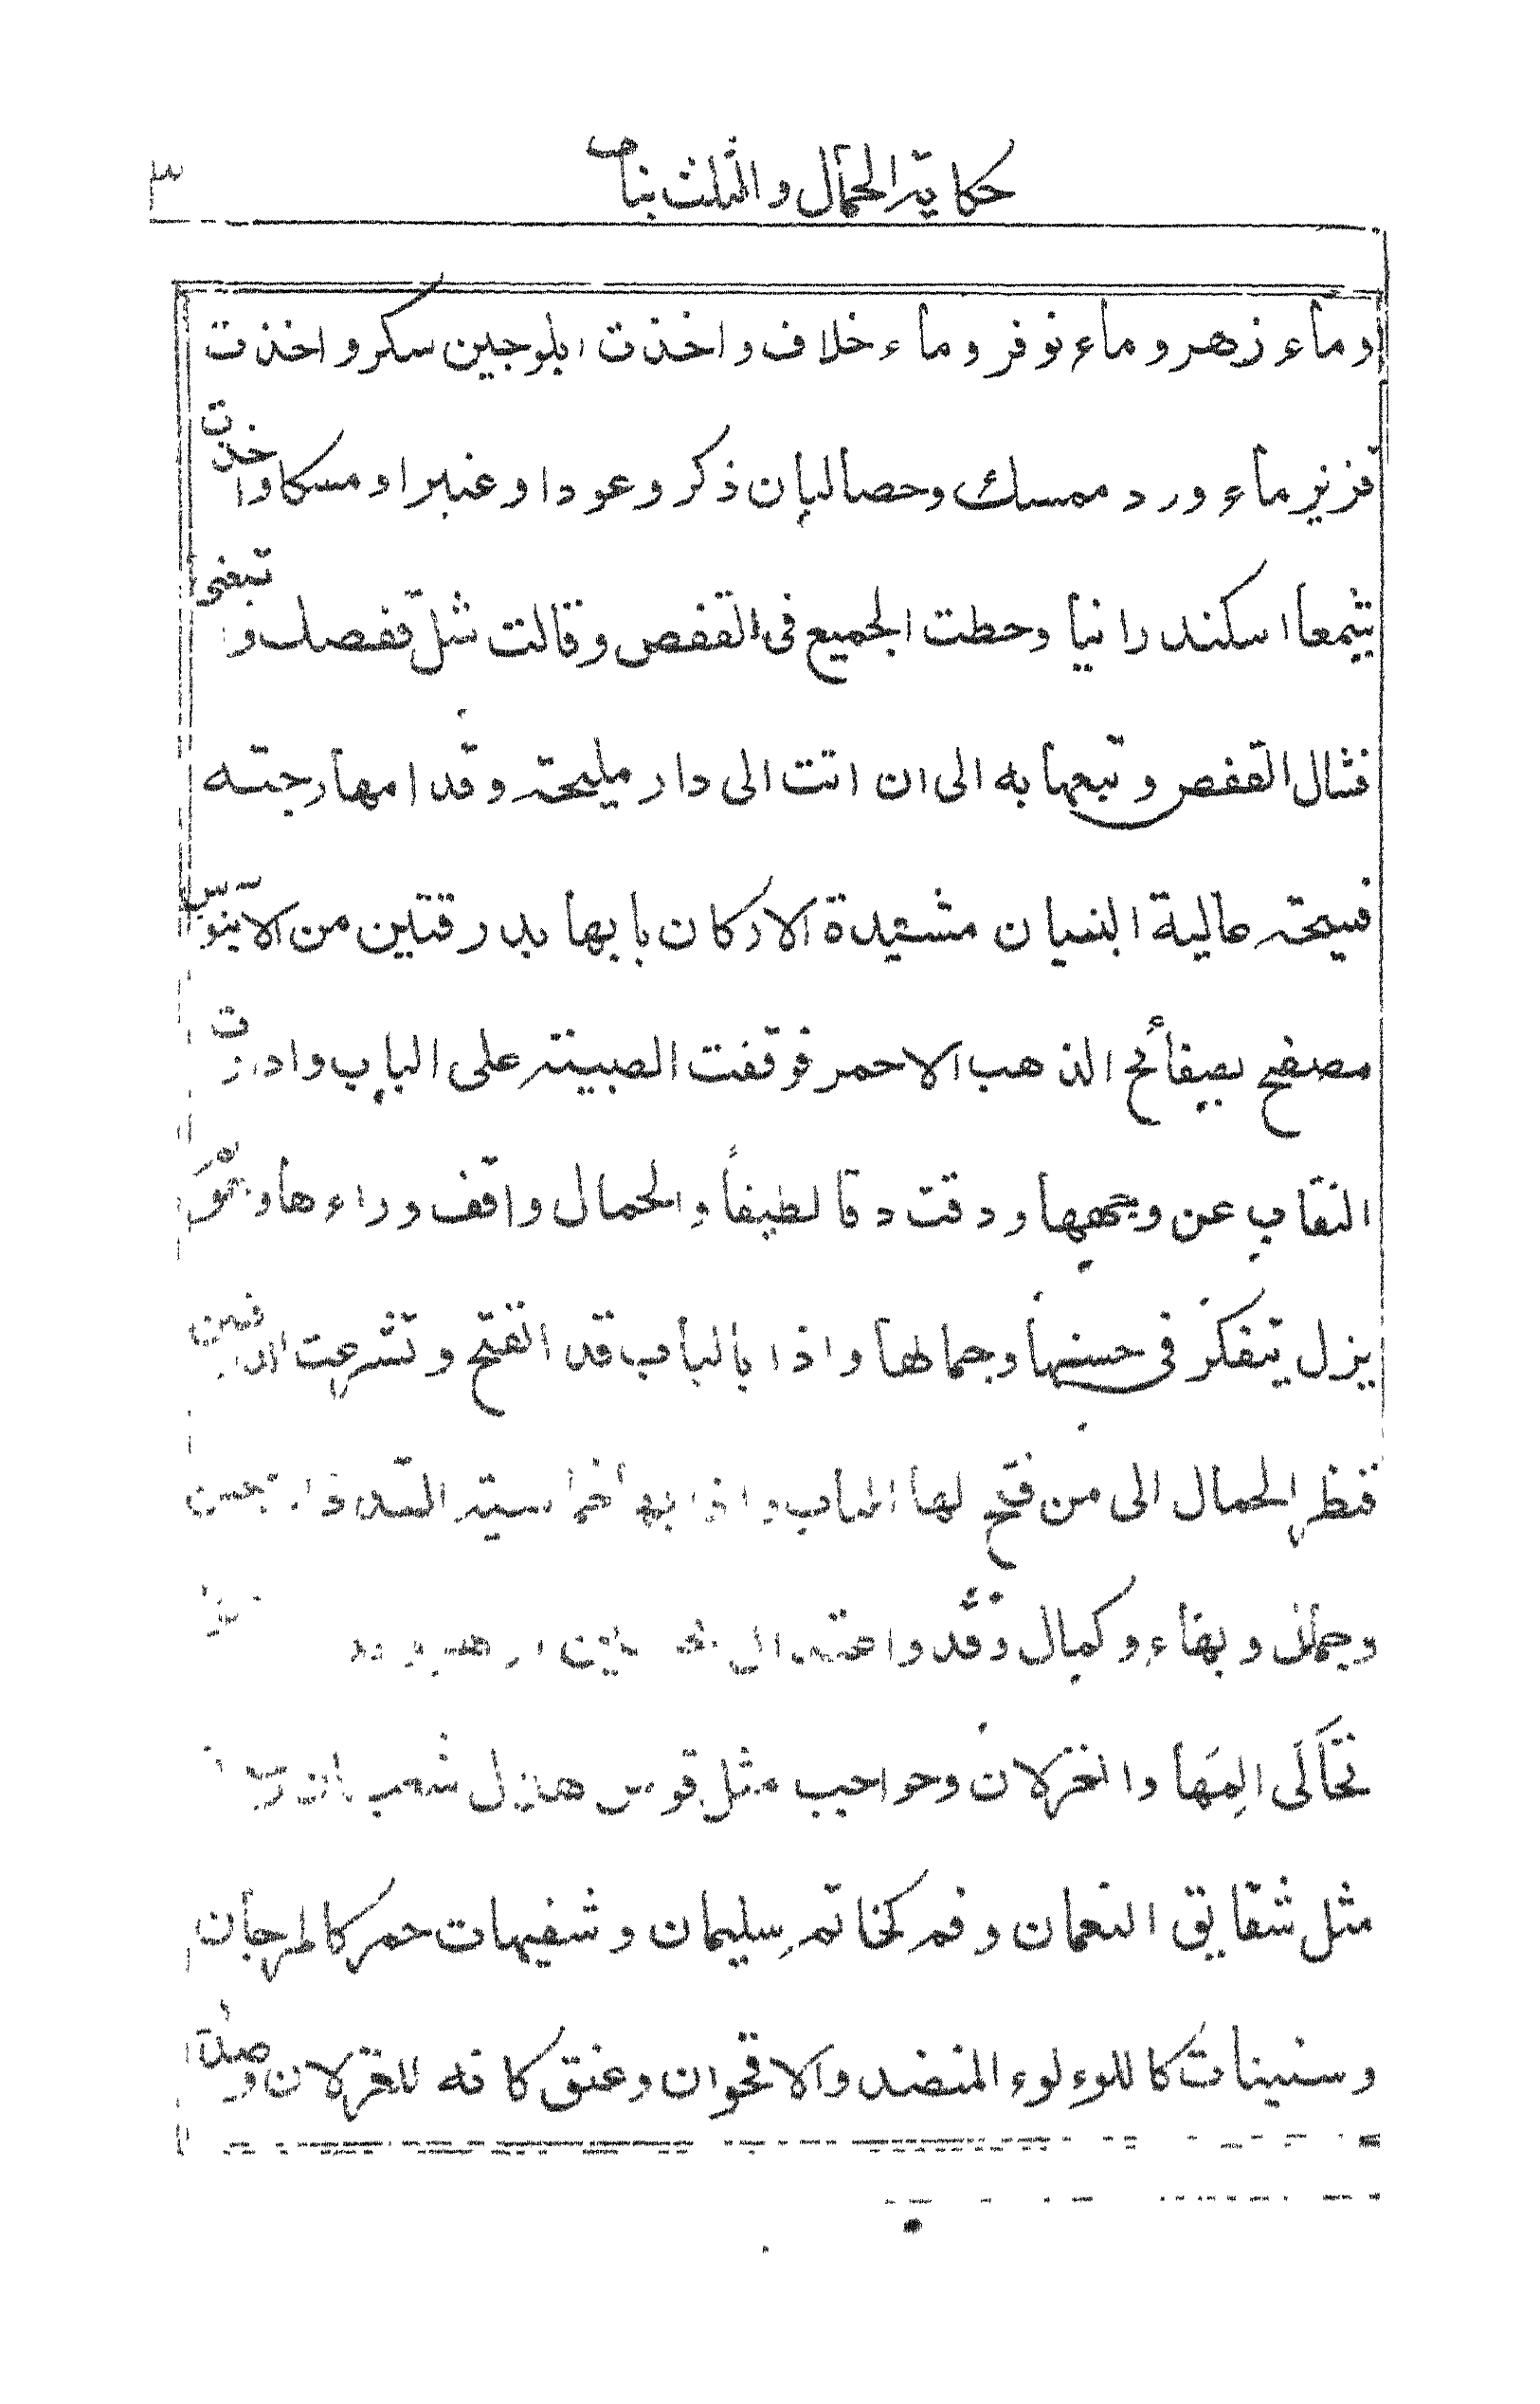 حكاية الحمال والثلث بنات ٣
وماء زهر وماء نوفر وماء خلاف واخذت ابلوجين سكر واخذت
قزنيز ماء ورد ممسك وحصالبان ذكر وعودا وعنبرا ومسكا واخذت
شمعا اسكندرانيا وحطت الجميع فى القفص وقالت شل قفصك و
فشال القفص وتبعها به الى ان اتت الى دار مليحة وقدامها رحبة
فسيحة عالية البنيان مشيدة الاركان بابها بدرفتين من الابنوس
مصفح بصفائح الذهب الاحمر فوقفت الصبية على الباب وادارت
النقاب عن وجهها ودقت دقا لطيفاً والحمال واقف وراءها وهو
يزل يتفكر فى حسنها وجمالها واذا بالباب قد انفتح وتشرعت
فنظر الحمال الى من فتح لها الباب واذا بها خماسية القد ذات حسن
وجمال وبهاء وكمال وقد واعتدال
تحاكى المها والغزلان وحواجب مثل قوس هلال شعبان
مثل شقايق النعمان وفم كخاتم سليمان وشفيهات حمر كالمرجان
وسنينات كاللوءلوء المنضد والاقحوان وعنق كانه للغزلان و